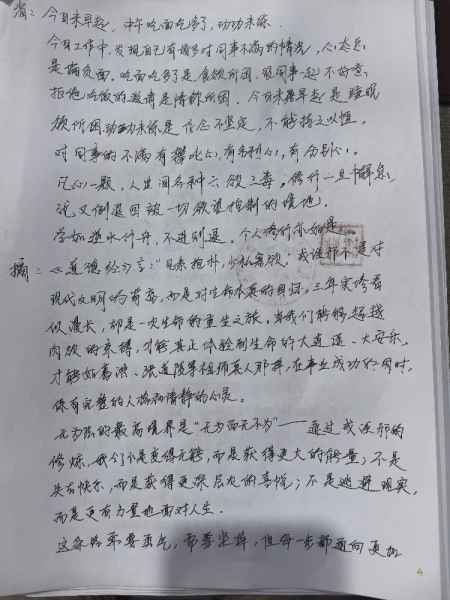 省：今日未早起，中午吃面吃多了，功功未炼．
今日工作中，发现自己有很多对同事不满的情况，心态总
是偏负面。吃面吃多了是食欲所困，跟同事一起不好意思
拒绝吃饭的邀请是情欲所困．今日未暴早起是睡眠
欲所困，动功未炼是信念不坚定，不能持之以恒．
对同事的不满有攀比心，有名利心，有分别心．
凡心一颗，人生间各种六欲三毒。修行一旦懈怠，
就又倒退回被一切欲望控制的境地。
学如逆水行舟，不进则退。个人修行亦如是
摘：《道德经》言："见素抱朴，少私寡欲"戒淫邪不是对
现代文明的背离，而是对生命本真的回归，三年实修看
似漫长，却是一次生命的重生之旅，当我们能够超越
肉欲的束缚，才能真正体验到生命的大逍遥、大安乐，
才能如葛洪、张道陵等祖师真人那样，在事业成功的同时，
保有完整的人格和清静的心灵。
无为法的最高境界是"无为而无不为"——通过戒淫邪的
修炼，我们不是变得无能，而是获得更大的能量；不是
失去快乐，而是获得更深层次的喜悦；不是逃避现实，
而是更有力量地面对人生．
这条路需要勇气，需要坚持，但每一步都通向更加
4